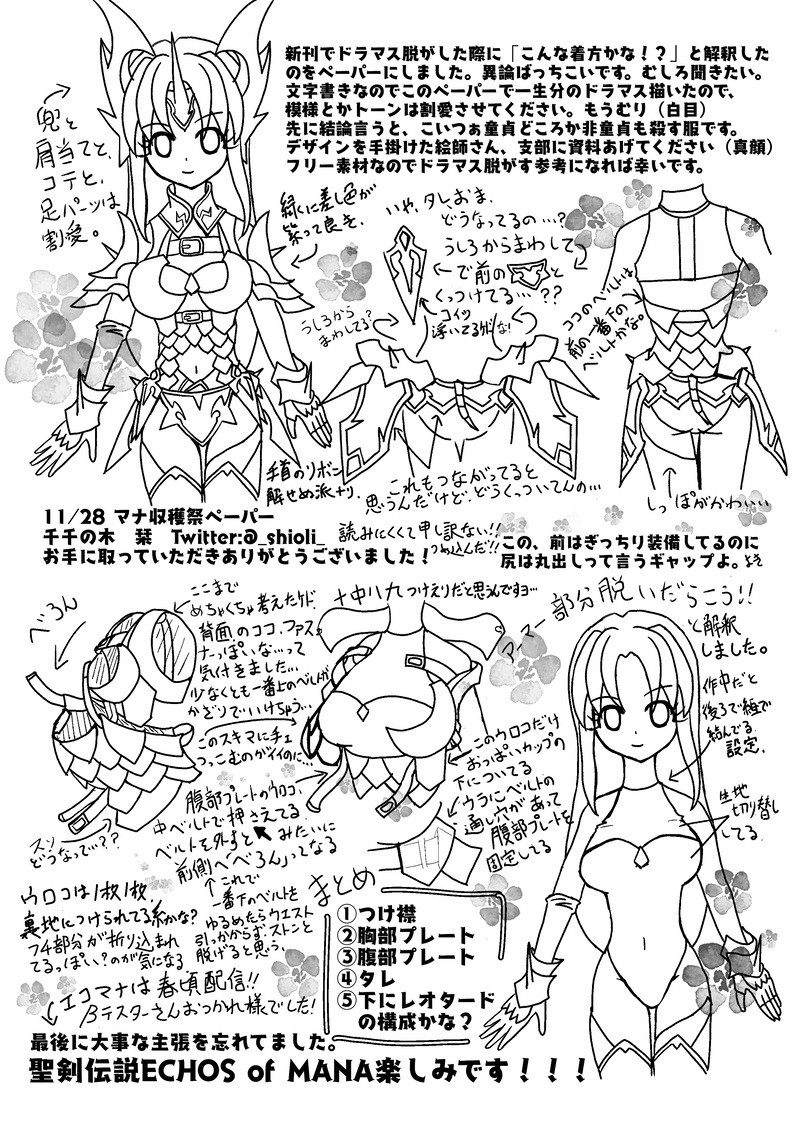 新刊でドラマス脱がした際に「こんな着方かな！？」と解釈した
のをペーパーにしました。異論ばっちこいです。むしろ聞きたい。
文字書きなのでこのペーパーで一生分のドラマス描いたので、
模様とかトーンは割愛させてください。もうむり（白目）
先に結論言うと、こいつぁ童貞どころか非童貞も殺す服です。
デザインを手掛けた絵師さん、支部に資料あげてください（真顔）
フリー素材なのでドラマス脱がす参考になれば幸いです。
兜と
肩当てと、
コテと、
足パーツは
割愛。
緑くに差し色が
紫って良き。
いや、タレおま、
どうなってるの…？
うしろからまわして
で前の
と
くっつけてる…？？
コイツ
浮いてるケドな!
うしろから
まわしてる?
ココのベルトは
前の一番下の
ベルトかな。
手首のリボン
解せめ派ナリ。
これもつながってると
思うんだけど、どうくっついてんの…
しっぽがかわいい
11/28 マナ収穫祭ペーパー
千千の木　栞　Twitter:@_shioli_
お手に取っていただきありがとうございました！
読みにくくて申し訳ない!!
つめ込んだ!!
この、前はぎっちり装備してるのに
尻は丸出しって言うギャップよ。
べろん
ここまで
めちゃくちゃ考えたケド
背面のココ、ファス
ナーっぽいな…って
気付きました…
少なくとも一番上のベルトが
かざりでいけちゃう…
十中八九つけえりだと思うんですヨ…
アーマー部分脱いだらこう!!
と解釈
しました。
作中だと
後ろで紐で
結んでる
設定。
生地
切り替え
してる。
このスキマにチェ
っこむのがイイのに…
このウロコだけ
おっぱいカップの
下についてる
ウラにベルトの
通し穴があって
腹部プレートを
固定してる
腹部プレートのウロコ、
中ベルトで押さえてる。
ベルトを外すと みたいに
前側べろんってなる
これで
一番下のベルトを
ゆるめたらウエスト
引っかからずストンと
脱げると思う。
どうなって…??
ウロコは1枚1枚
裏地につけられてる系かな?
フチ部分が折り込まれ
てるっぽい?のが気になる
エコマナは春頃配信!!
βテスターさんおつかれ様でした!
まとめ
①つけ襟
②胸部プレート
③腹部プレート
④タレ
⑤下にレオタード
の構成かな？
最後に大事な主張を忘れてました。
聖剣伝説ECHOS of MANA楽しみです！！！